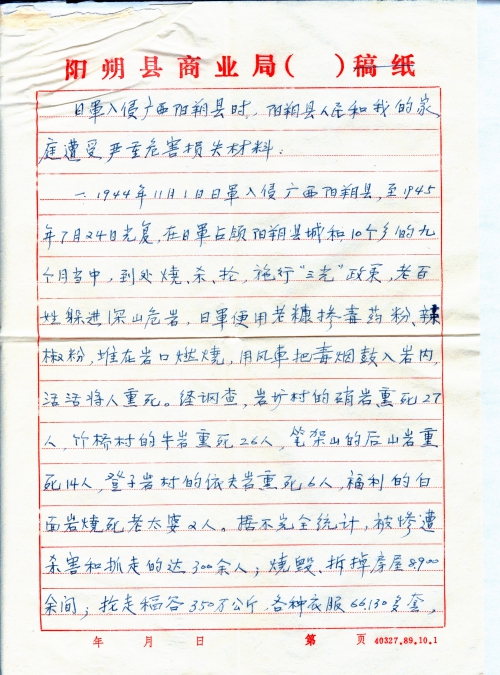 阳朔县商业局( )稿纸
日軍入侵广西阳朔县时，阳朔县人民和我的家
庭遭受严重危害损失材料：
一.1944年11月1日日軍入侵广西阳朔县，至1945
年7月24日光复，在日軍占领阳朔县城和10个乡的九
个月当中，到处燒、杀、抢，施行“三光”政策，老百
姓躲进深山危岩，日軍便用老糠掺毒药粉、辣
椒粉，堆在岩口燃燒，用风車把毒烟鼓入岩内，
活活将人熏死。经调查，岩圹村的硝岩熏死27
人，竹桥村的牛岩熏死26人，笔架山的后山岩熏
死14人，凳子岩村的依夫岩熏死6人，福利的白
面岩燒死老太婆2人。据不完全统计，被惨遭
杀害和抓走的达300余人；燒毁、拆掉房屋8900
余间；抢走稻谷350万公斤，各种衣服66130多套，
年 月 日 第 页 40327.89.10.1